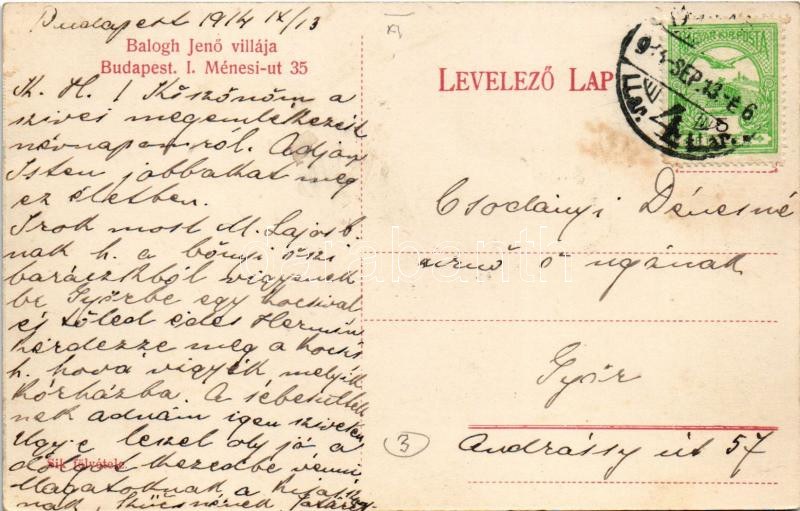 Budapest 1914 IX/13
Balogh Jenő villája
Budapest. I. Ménesi-ut 35
K. H.! Köszönöm a
szives megemlékezést
névnapomról. Adjon
Isten jobbakat még
ez életben.
Irok most M. Lajosb.
nak h. a bőnyi őszi
baraczkból vigyenek
be Győrbe egy kocsival
és tőled édes Hermin
kérdezze meg a kocsis
h. hova vigyék melyik
kórházba. A sebesültek
nek adnám igen szivesen
Ugy-e leszel oly jó a
dolgot kezedbe venni
Magatoknak a
nak,
Sik fölvétele.
LEVELEZŐ LAP
MAGYAR KIR. POSTA
914 SEP. 13
Csodányi Dénesné
urnő ő ngának
Győr
Andrássy út 57
3
darabanth